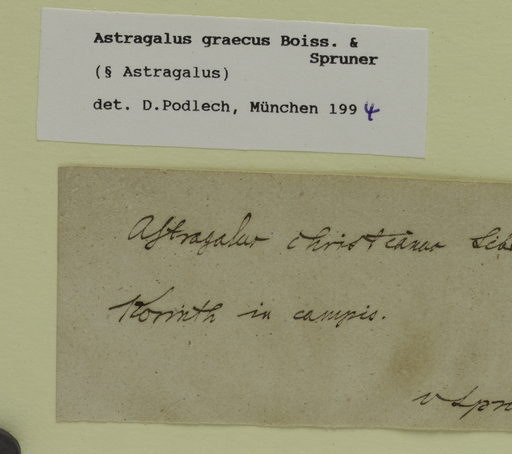 Astragalus graecus Boiss. &
Spruner
(§ Astragalus)
det. D.Podlech, München 1994
Astragalus christianus
Korinth in campis.
v Spru